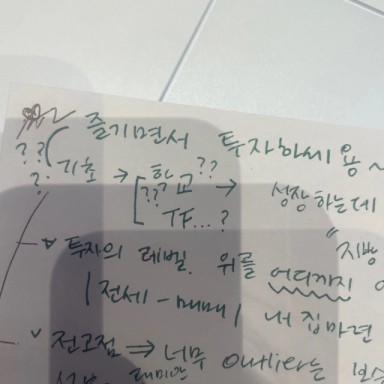 즐기면서 투자하세용~
?? 기초 → [ 학교 ?? → 성장하는데
? ?? TF...?
"지방
∨ 투자의 레벨. 위를 어디까지
| 전세-매매 | 내 집 마련
∨ 전고점 ⇒ 너무 outlier는 보수